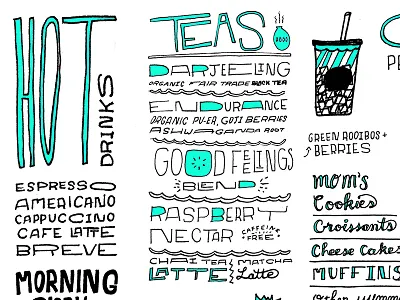 HOT
DRINKS
ESPRESSO
AMERICANO
CAPPUCCINO
CAFE LATTE
BREVE
MORNING
TEAS
DARJEELING
ORGANIC FAIR TRADE BLACK TEA
ENDURANCE
ORGANIC PU-ER, GOTI BERRIES
ASHWAGANDA ROOT
GOOD FEELINGS
BLEND
RASPBERRY
NECTAR
CAFFEINE
FREE!
CHAI TEA
LATTE
MATCHA
Latte
GREEN ROOIBOS +
BERRIES
MOM'S
Cookies
Croissants
Cheese Cakes
MUFFINS